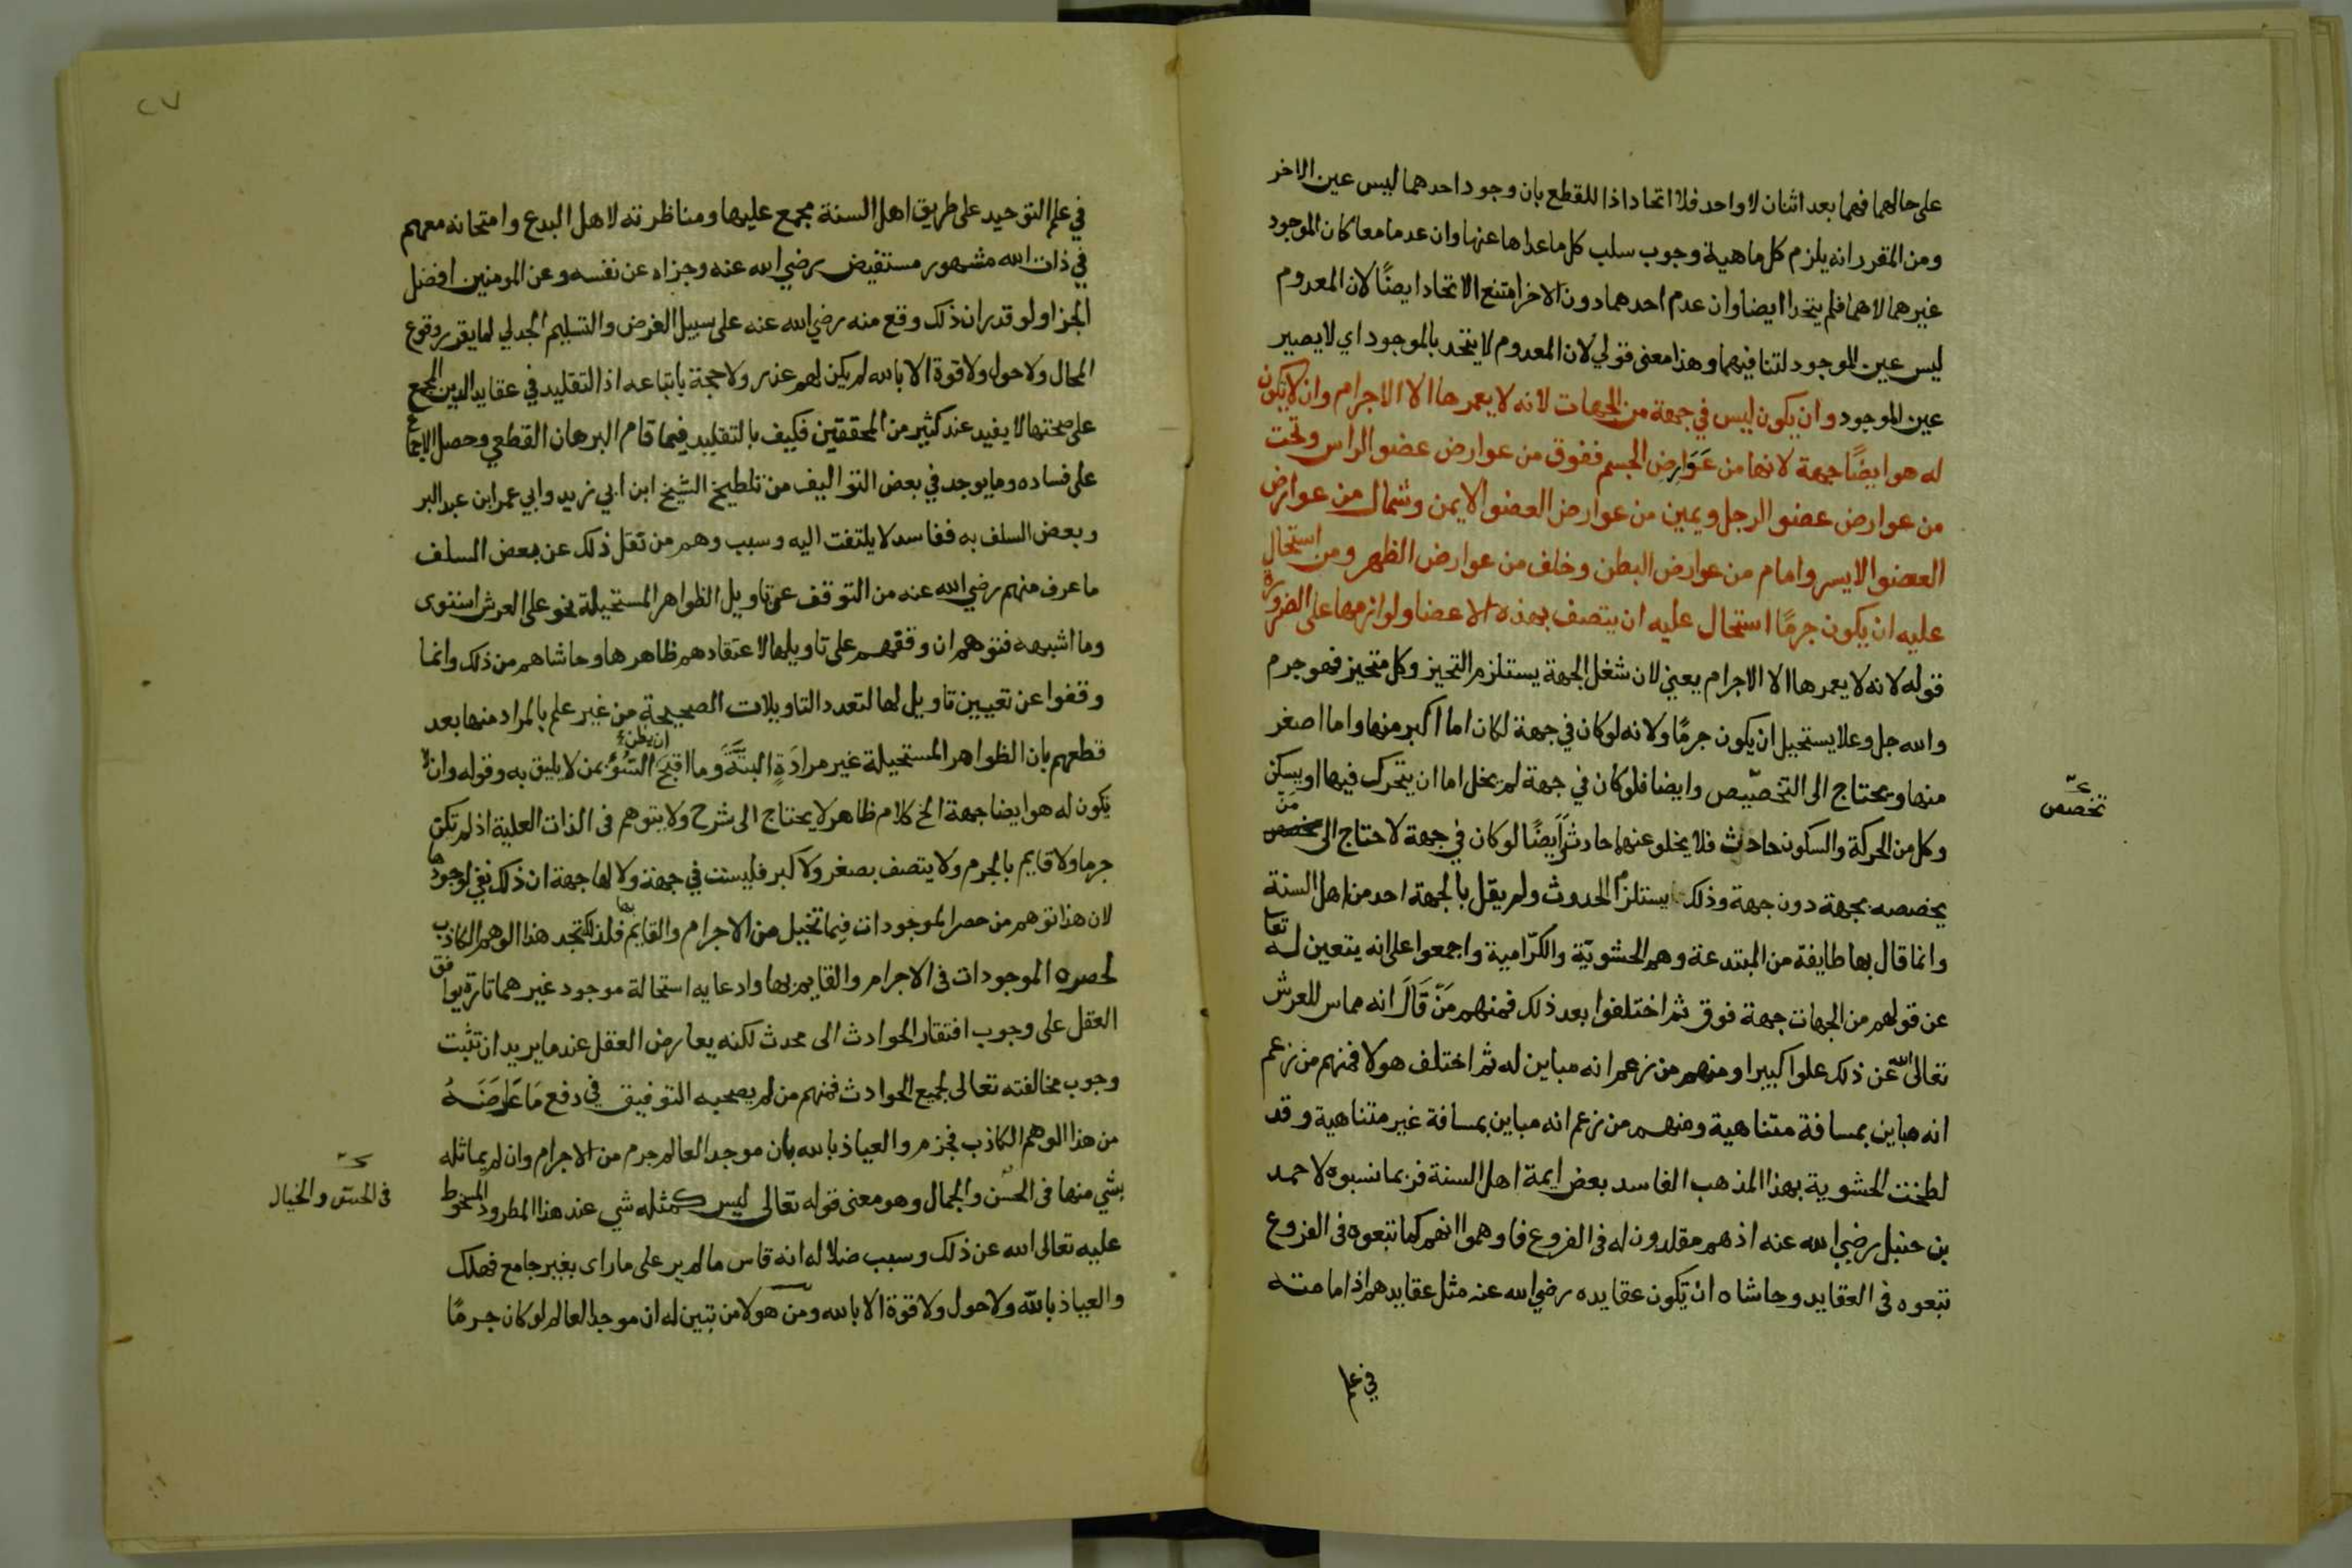 على حالهما فهما بعد اثنان لا واحد فلا اتحاد اذا للقطع بان وجود احدهما ليس عين الاخر
ومن المقرر انه يلزم كل ماهية وجوب سلب كل ما عداها عنها وان عدما معا كان الموجود
غيرهما لا هما فلم يتحدا ايضا وان عدم احدهما دون الاخر امتنع الاتحاد ايضًا لان المعدوم
ليس عين الموجود لتنافيهما وهذا معنى قولي لان المعدوم لا يتحد بالموجود اي لا يصير
عين الموجود وان يكون ليس في جهة من الجهات لانه لا يعمرها الا الاجرام وان لا يكون
له هو ايضًا جهة لانها من عَوَارِض الجسم ففوق من عوارض عضو الراس وتحت
من عوارض عضو الرجل ويمين من عوارض العضو الايمن وشمال من عوارض
العضو الايسر وامام من عوارض البطن وخلف من عوارض الظهر ومن استحال
عليه ان يكون جرمًا استحال عليه ان يتصف بهذه الاعضا ولوازمها على الضرورة
قوله لانه لا يعمرها الا الاجرام يعني لان شغل الجهة يستلزم التحيز وكل متحيز فهو جرم
والله جل وعلا يستحيل ان يكون جرمًا ولانه لو كان في جهة لكان اما اكبر منها واما اصغر
منها ويحتاج الى التخصّيص وايضا فلو كان في جهة لم يخل اما ان يتحرك فيها او يسكن
وكل من الحركة والسكون حادث فلا يخلو عنهما حادث وَايضًا لو كان في جهة لاحتاج الى مَن
يخصصه بجهة دون جهة وذلك يستلزم الحدوث ولم يقل بالجهة احد من اهل السنة
وانما قال بها طايفة من المبتدعة وهم الحشويّة والكرّامية واجمعوا على انه يتعين له تعا
عن قولهم من الجهات جهة فوق ثم اختلفوا بعد ذلك فمنهم مَنْ قَالَ انه مماس للعرش
تعالى الله عن ذلك علوا كبيرا ومنهم من زعم انه مباين له ثم اختلف هولا فمنهم من زعم
انه مباين بمسافة متناهية ومنهم من زعم انه مباين بمسافة غير متناهية وقد
لطخت الحشوية بهذا المذهب الفاسد بعض ايمة اهل السنة فربما نسبوه لاحمد
بن حنبل رضي الله عنه اذ هم مقلدون له في الفروع فاوهموا انهم كما تبعوه في الفروع
تبعوه في العقايد وحاشاه ان تكون عقايده رضي الله عنه مثل عقايدهم اذ امامته
في علم
تخصّص
٢٧
في علم التوحيد على طريق اهل السنة مجمع عليها ومناظرته لاهل البدع وامتحانه معهم
في ذات الله مشهور مستفيض رضي الله عنه وجزاه عن نفسه وعن المومنين افضل
الجزا ولو قدر ان ذلك وقع منه رضي الله عنه على سبيل الفرض والتسليم الجدلي لما يقرر وقوع
المحال ولا حول ولا قوة الا بالله لم يكن لهم عذر ولا حجة باتباعه اذ التقليد في عقايد الدين المجمع
على صحتها لا يفيد عند كثير من المحققين فكيف بالتقليد فيما قام البرهان القطعي وحصل الاجماع
على فساده وما يوجد في بعض التواليف من تلطيخ الشيخ ابن ابي زيد وابي عمر ابن عبد البر
وبعض السلف به ففاسد لا يلتفت اليه وسبب وهم من نقل ذلك عن بعض السلف
ما عرف منهم رضي الله عنه من التوقف عن تاويل الظواهر المستحيلة نحو على العرش استوى
وما اشبهه فتوهم ان وقفهم على تاويلها لاعتقادهم ظاهرها وحاشاهم من ذلك وانما
وقفوا عن تعيين تاويل لها لتعدد التاويلات الصحيحة من غير علم بالمراد منها بعد
قطعهم بان الظواهر المستحيلة غير مرادَةٍ البتَّةَ وما اقبَحَ ان يظن السُّوُّ بمن لا يليق به وقوله وان لا
يكون له هو ايضا جهة الخ كلام ظاهر لا يحتاج الى شرح ولا يتوهم في الذات العلية اذ لم تكن
جرما ولا قايم بالجرم ولا يتصف بصغر ولا كبر فليست في جهة ولا لها جهة ان ذلك نفي لوجودها
لان هذا توهم من حصر الموجودات فيما تخيل من الاجرام والقايم بها فلذلك تجد هذا الوهم الكاذب
لحصره الموجودات في الاجرام والقايم بها وادعايه استحالة موجود غيرهما تارة يوافق
العقل على وجوب افتقار الحوادث الى محدث لكنه يعارض العقل عندما يريد ان تثبت
وجوب مخالفته تعالى لجميع الحوادث فمنهم من لم يصحبه التوفيق في دفع مَا عَارَضَهُ
من هذا الوهم الكاذب فجزم والعياذ بالله بان موجد العالم جرم من الاجرام وان لم يماثله
بشي منها في الحسن والجمال وهو معنى قوله تعالى ليس كمثله شي عند هذا المطرود المسخوط
عليه تعالى الله عن ذلك وسبب ضلاله انه قاس ما لم ير على ما راى بغير جامع فهلك
والعياذ بالله ولا حول ولا قوة الا بالله ومن هولا من تبين له ان موجد العالم لو كان جرمًا
في الحس والخيال